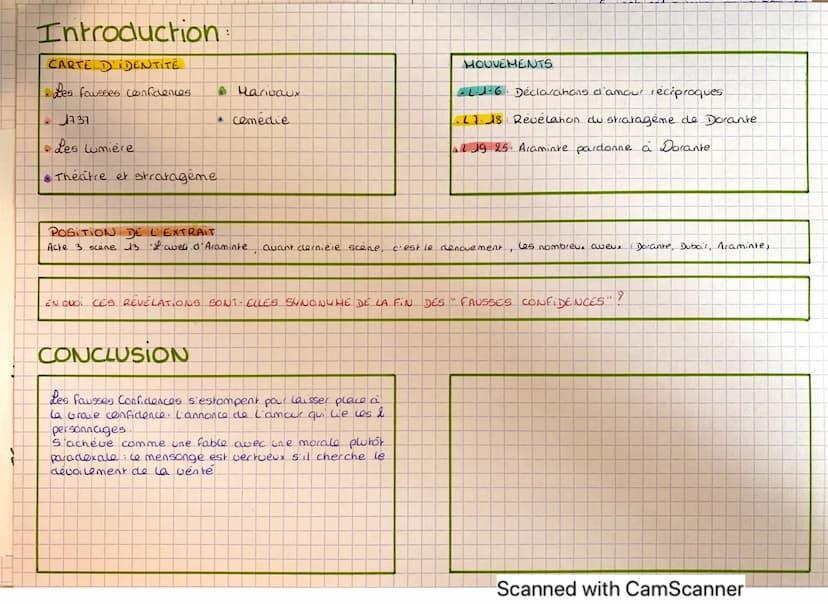 Introduction:
CARTE D'IDENTITÉ
Les fausses confidences
Marivaux
1737
comédie
Les lumière
Théâtre et stratagème
MOUVEMENTS
L 1-6: Déclarations d'amour réciproques
L 7-18: Révélation du stratagème de Dorante
L 19-25: Araminte pardonne à Dorante
POSITION DE L'EXTRAIT
Acte 3 scène 13 "L'aveu d'Araminte, avant dernière scène, c'est le dénouement, les nombreux aveux (Dorante, Dubois, Araminte)
EN QUOI CES RÉVÉLATIONS SONT-ELLES SYNONYME DE LA FIN DES "FAUSSES CONFIDENCES"?
CONCLUSION
Les fausses Confidences s'estompent pour laisser place à
la vraie confidence: l'annonce de l'amour qui lie les 2
personnages.
S'achève comme une fable avec une morale plutôt
paradoxale: le mensonge est vertueux s'il cherche le
dévoilement de la vérité
Scanned with CamScanner